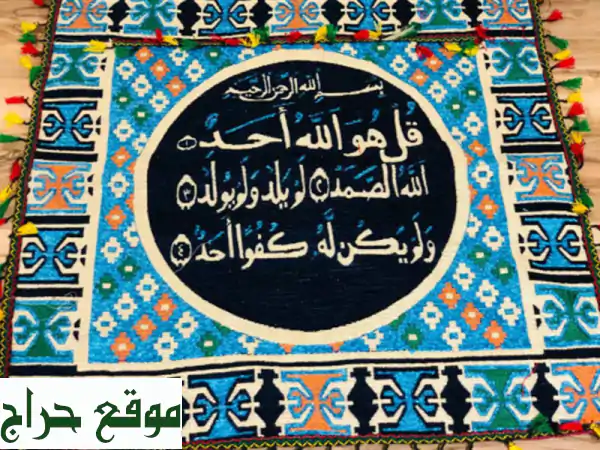 بسم الله الرحمن الرحيم
قُلْ هُوَ اللَّهُ أَحَدٌ ١
اللَّهُ الصَّمَدُ ٢ لَمْ يَلِدْ وَلَمْ يُولَدْ ٣
وَلَمْ يَكُن لَّهُ كُفُوًا أَحَدٌ ٤
موقع حراج